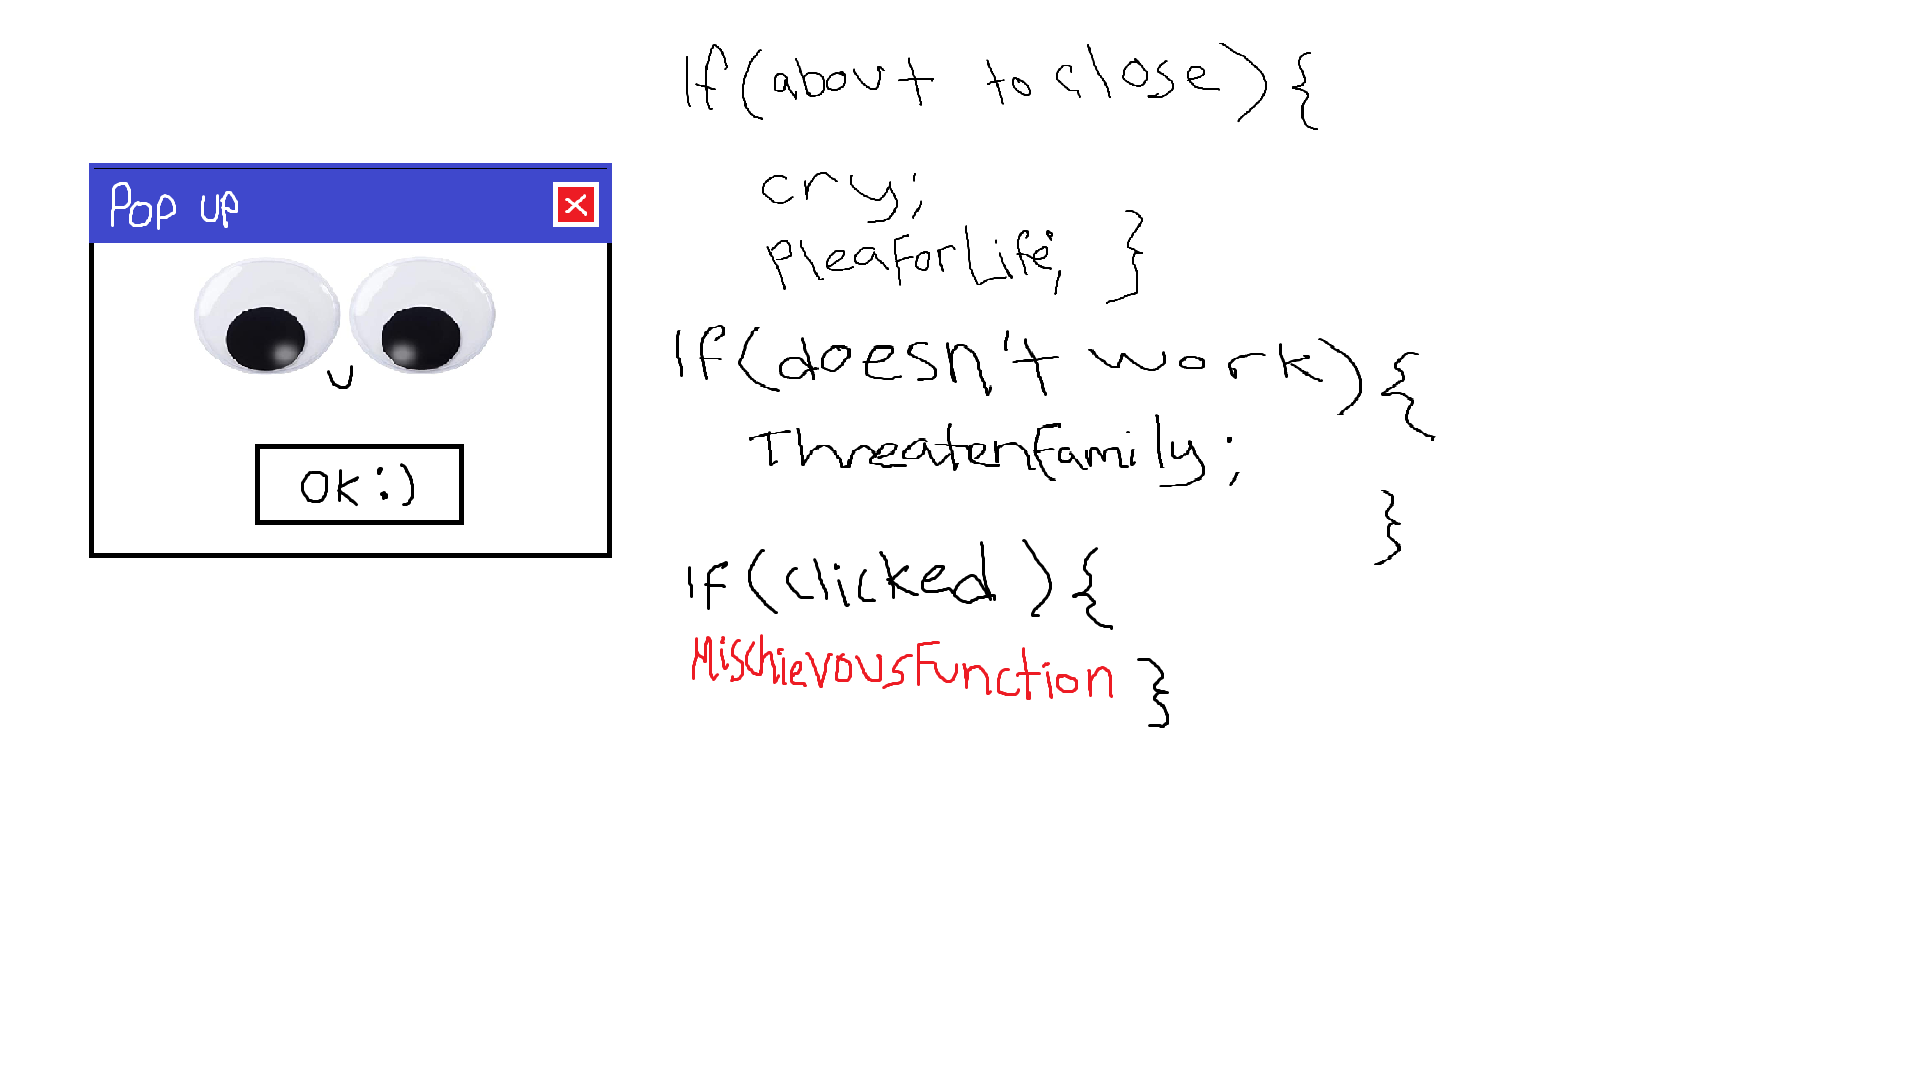 Pop up
OK :)
If (about to close) {
cry;
pleaForLife; }
If (doesn't work) {
ThreatenFamily;
}
If (clicked) {
MischievousFunction }